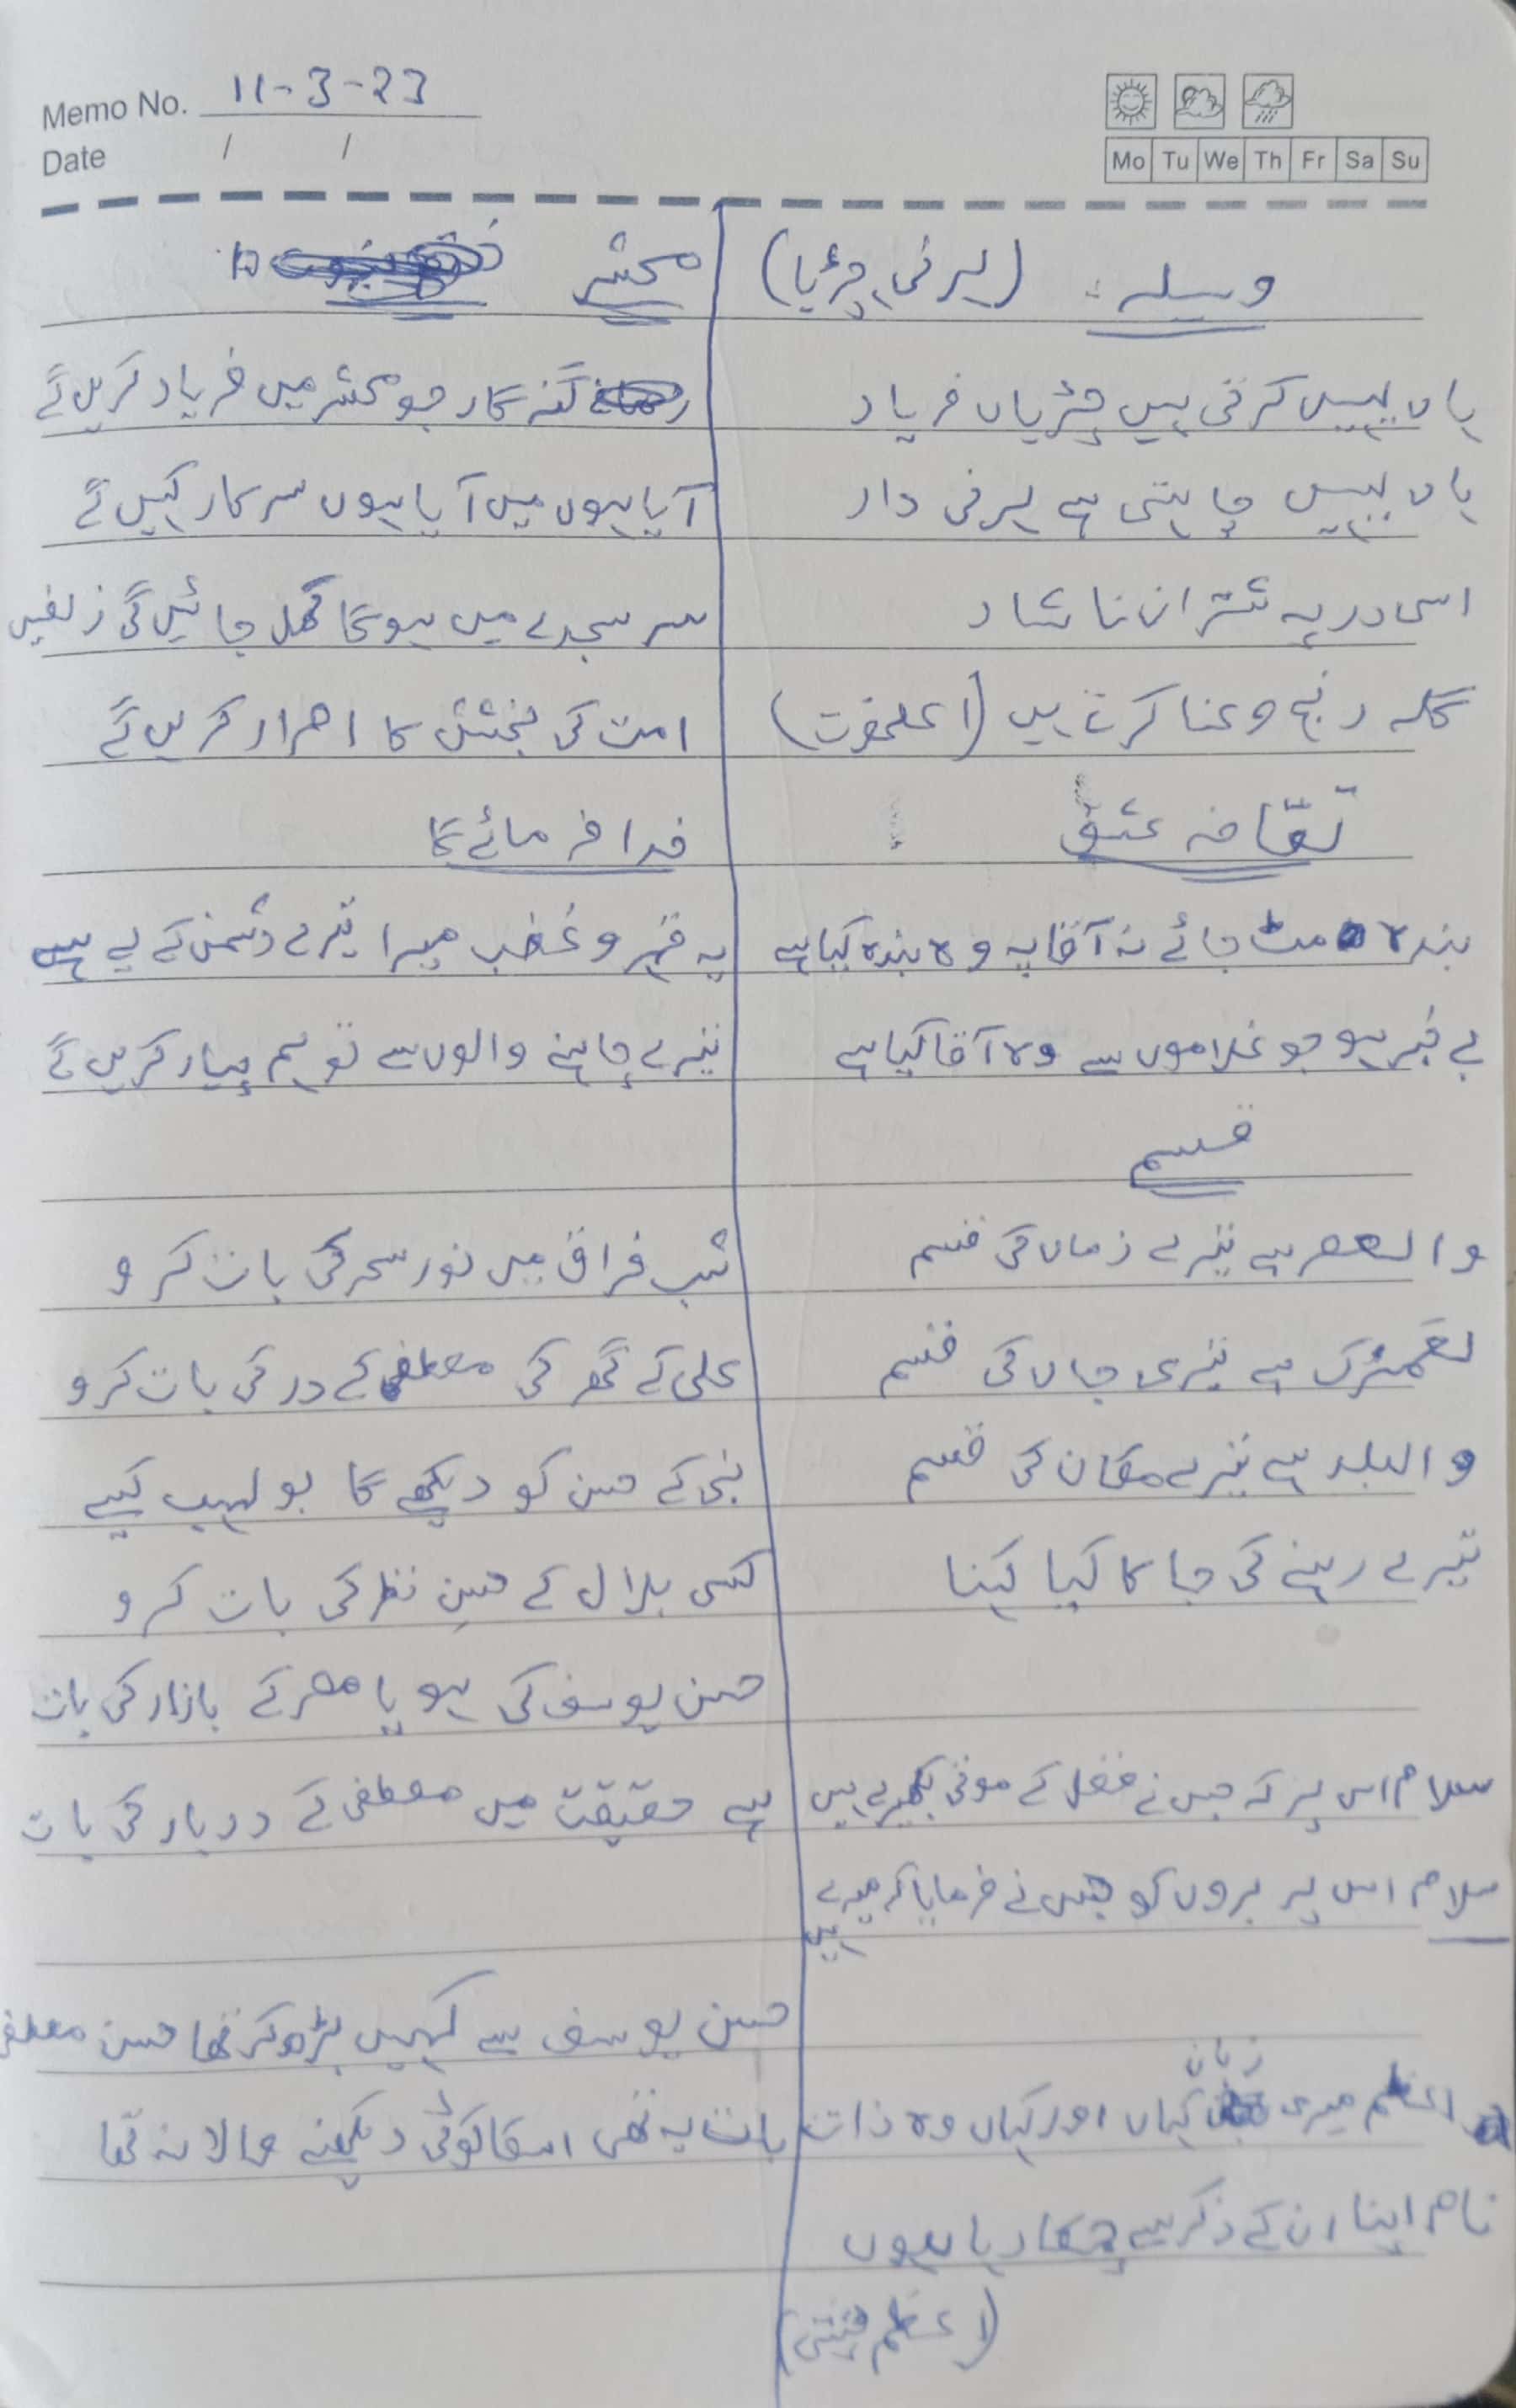 Memo No. 11-3-23
Date / /
Mo Tu We Th Fr Sa Su
وسیلہ: (ہرنی، چڑیا)
ہاں یہیں کرتی ہیں چڑیاں فریاد
ہاں یہیں چاہتی ہے ہرنی داد
اسی در پہ شتران ناشاد
گلہ رنج و عنا کرتے ہیں (اعلحضرت)
تقاضہ عشق
بندہ مٹ جائے نہ آقا پہ وہ بندہ کیا ہے
بے خبر ہو جو غلاموں سے وہ آقا کیا ہے
قسم
والعصر ہے تیرے زماں کی قسم
لعمرک ہے تیری جاں کی قسم
والبلد ہے تیرے مکان کی قسم
تیرے رہنے کی جا کا کیا کہنا
سلام اس پر کہ جس نے فضل کے موتی بکھیرے ہیں
سلام اس پر بروں کو جس نے فرمایا کہ میرے ہیں
اعظم میری زباں کہاں اور کہاں وہ ذات
نام اپنا ان کے ذکر سے چمکا رہا ہوں
(اعظم چشتی)
محشر
گنہ گار جو محشر میں فریاد کریں گے
آیا ہوں میں آیا ہوں سرکار کہیں گے
سر سجدے میں ہوگا کھل جائیں گی زلفیں
امت کی بخشش کا اصرار کریں گے
خدا فرمائے گا
یہ قہر و غضب میرا تیرے دشمن کے لیے ہے
تیرے چاہنے والوں سے تو ہم پیار کریں گے
شب فراق میں نور سحر کی بات کرو
علی کے گھر کی مصطفی کے در کی بات کرو
نبی کے حسن کو دیکھے گا بو لہب کیسے
کسی بلال کے حسنِ نظر کی بات کرو
حسن یوسف کی ہو یا مصر کے بازار کی بات
ہے حقیقت میں مصطفی کے دربار کی بات
حسن یوسف سے کہیں بڑھ کر تھا حسن مصطفی
بات یہ تھی اسکا کوئی دیکھنے والا نہ تھا